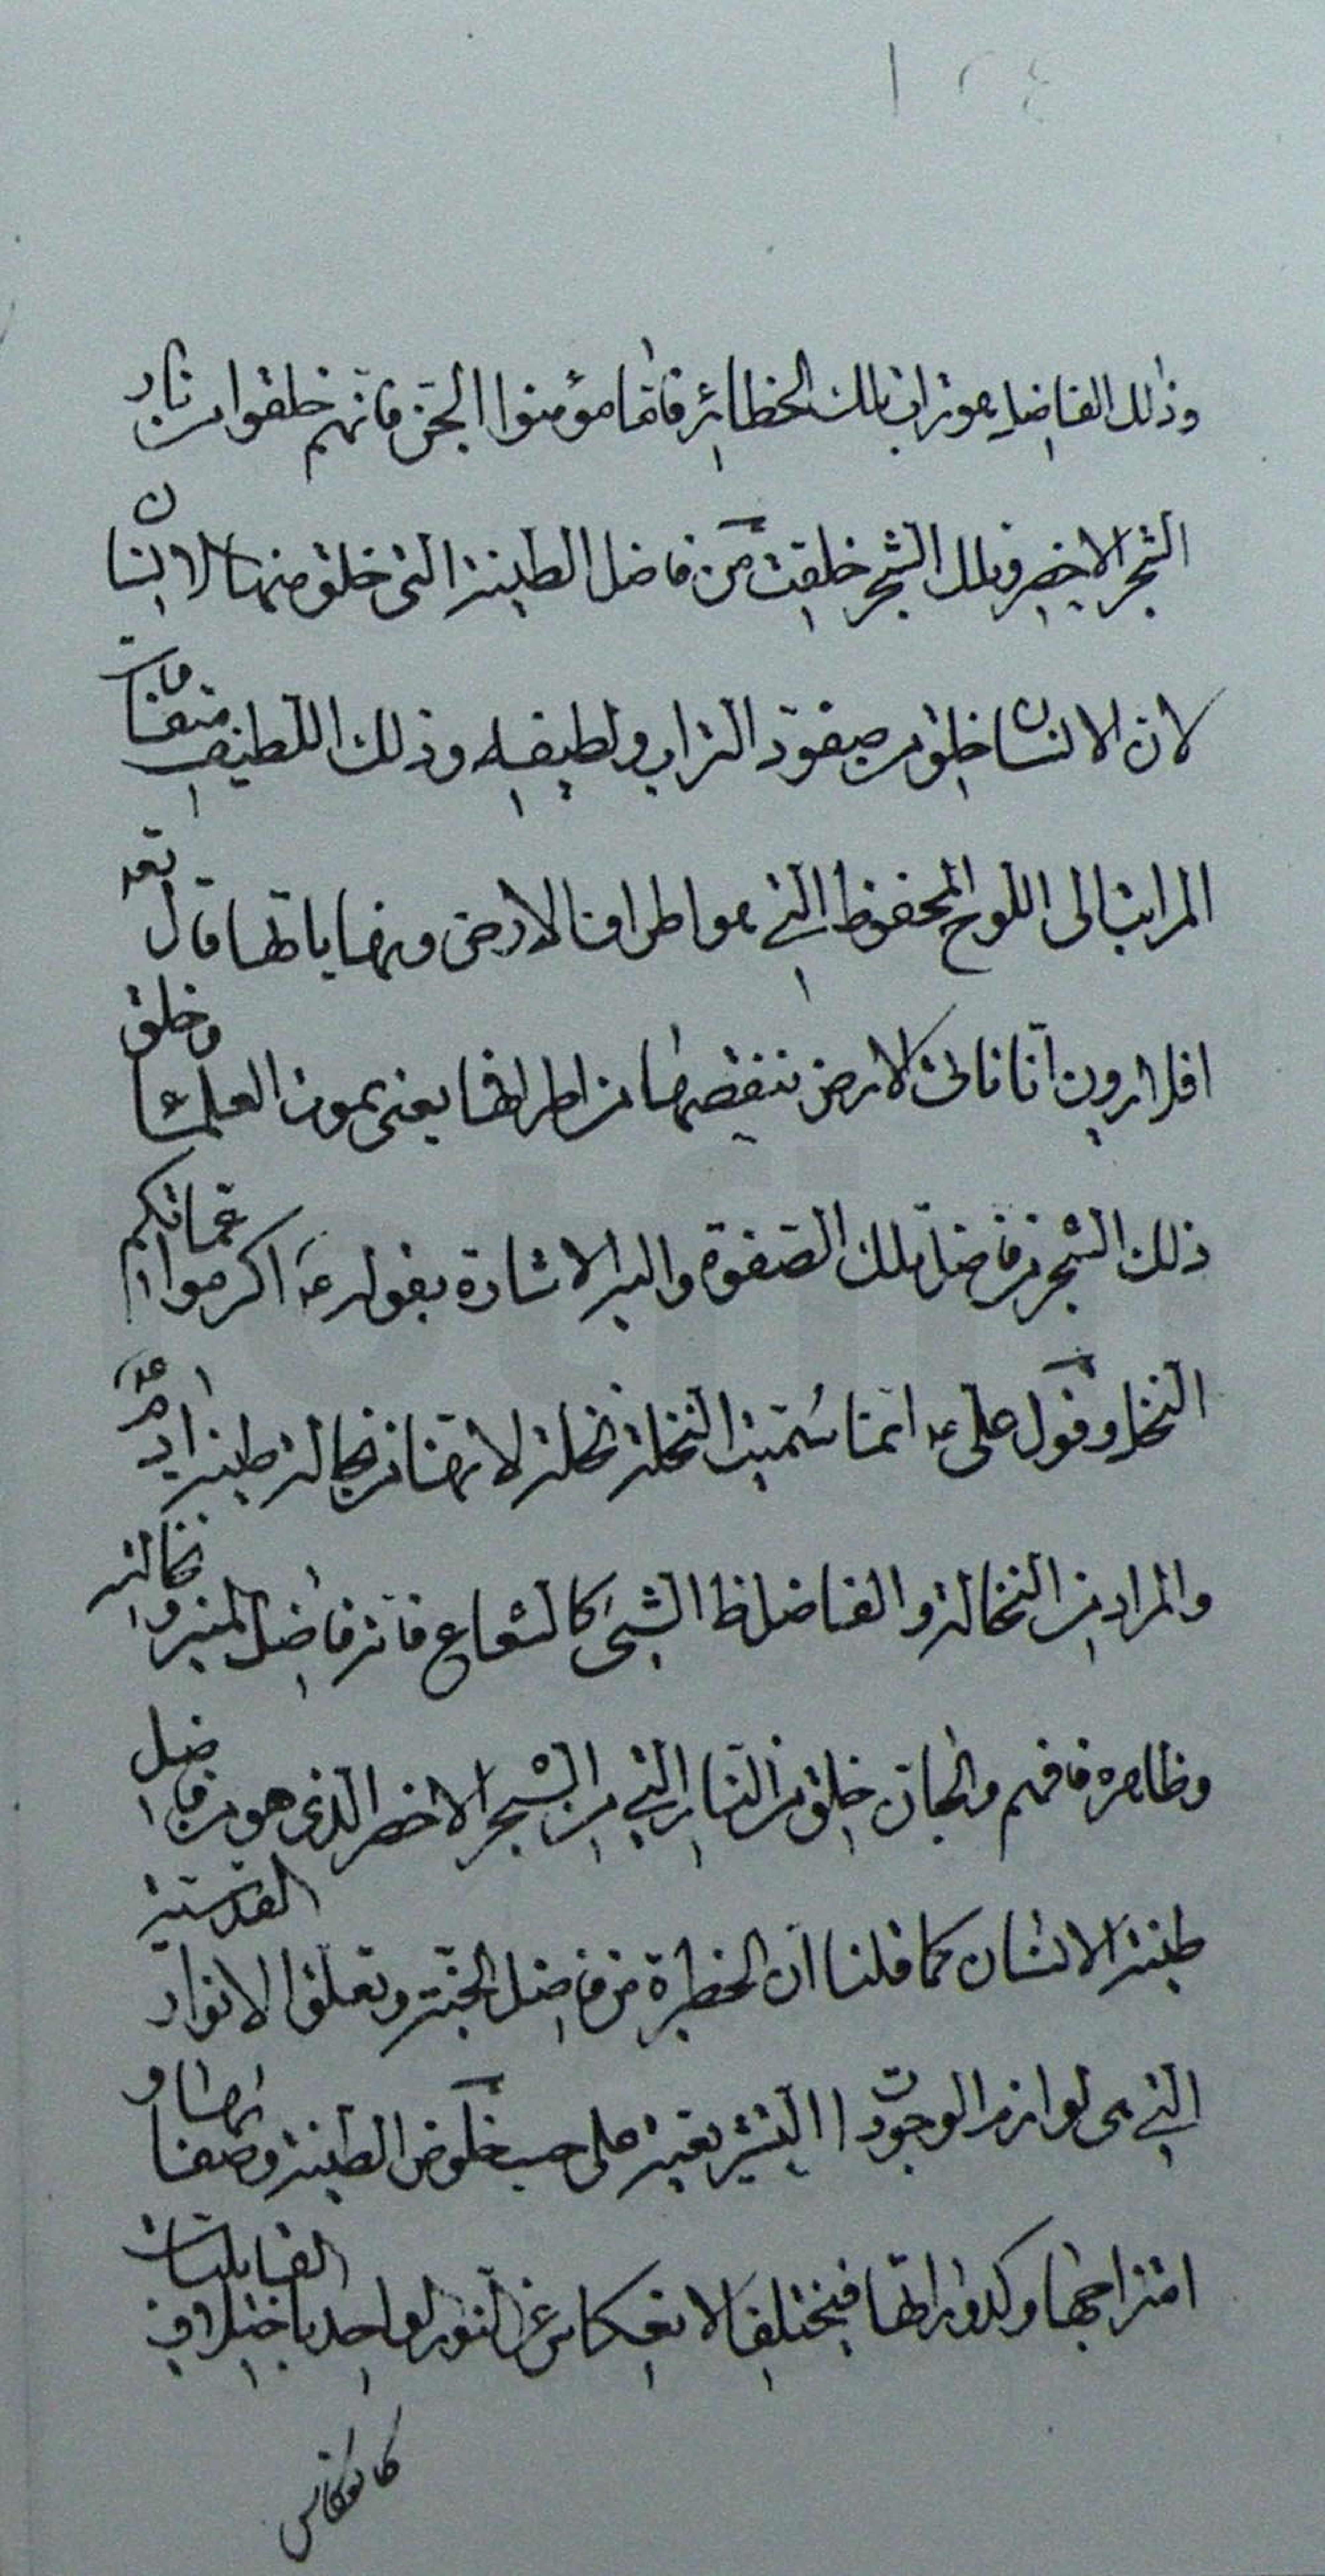 وذلك الفاضل هو تراب تلك الحظائر فامّا مؤمنوا الجنّ فانّهم خلقوا من نار
الشجر الاخضر وتلك الشجر خلقت من فاضل الطينة التى خلق منها الانسان
لان الانسان خلق من صفوة التراب ولطيفه وذلك اللطيف متفاوت
المراتب الى اللوح المحفوظ التي هو اطراف الارض ونهاياتها قال تعه
افلا يرون انا ناتى الارض ننقصها من اطرافها يعنى بموت العلماء وخلق
ذلك الشجر من فاضل تلك الصفوة واليه الاشارة بقوله عه اكرموا عماتكم
النخل وقول على عه انما سُمّيت النخلة نخلة لانها من نخالة طينة ادم عه
والمراد من النخالة والفاضل ظ الشىء كالشعاع فانه فاضل المنير ونخالته
وظاهره فافهم والجان خلق من النار التي من الشجر الاخضر الذى هو من فاضل
طينة الانسان كما قلنا ان الحظيرة من فاضل الجنّة وتعلق الانوار القدسيّة
التي هى لوازم الوجودات التشريعية على حسب خلوص الطينة وصفائها و
امتزاجها وكدوراتها فيختلف الانعكاس عن النور الواحد باختلاف القابليات
كانعكاس